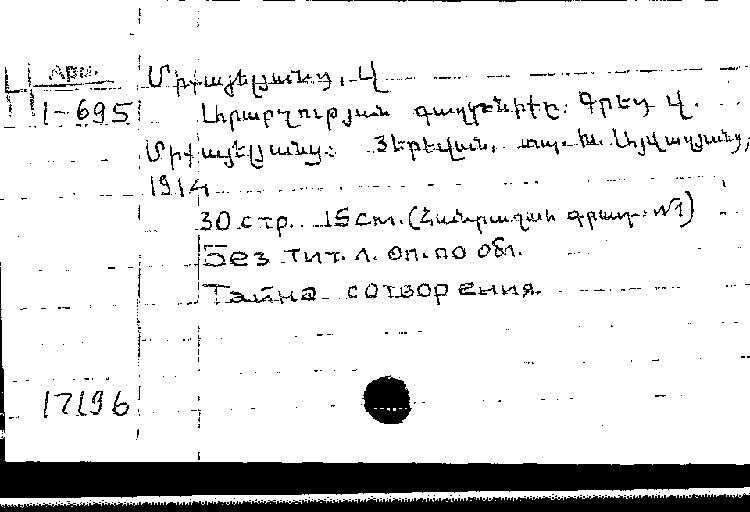 Арм.
1-695
Միքայելյանց, Վ
Արարչության գաղտնիքը. Գրեց Վ.
Միքայելյանց. Յերեվան, տպ. Խ. Այվազյանց,
1914
30 стр. 15 см. (Հանրամատչելի գրադ. №1)
Без тит. л. оп. по обл.
Тайна сотворения
17196